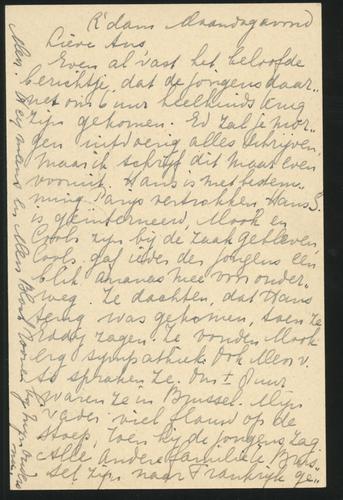 R'dam Maandagavond
Lieve Ans,
Even al vast het beloofde
berichtje, dat de jongens daar-
net om 6 uur heelhuids terug
zijn gekomen. Ed zal je mor-
gen uitvoerig alles schrijven,
maar ik schrijf dit maar even
vooruit. Hans is met bestem-
ming Parijs vertrokken, Hans S.
is geïnterneerd, Mook en
Cools zijn bij de zaak gebleven,
Cools gaf ieder der jongens een
blik ananas mee voor onder-
weg. Ze dachten, dat Hans
terug was gekomen, toen ze
Eddy zagen. Ze vonden Mook
erg sympathiek. Ook Mevr. v.
ze. Om ± 8 uur
waren ze in Brussel. Mijn
vader viel flauw op de
stoep, toen hij de jongens zag.
Alle andere familie in Brus-
sel zijn naar Frankrijk ge-
Mevr. en Mevr. bij mijn ouders